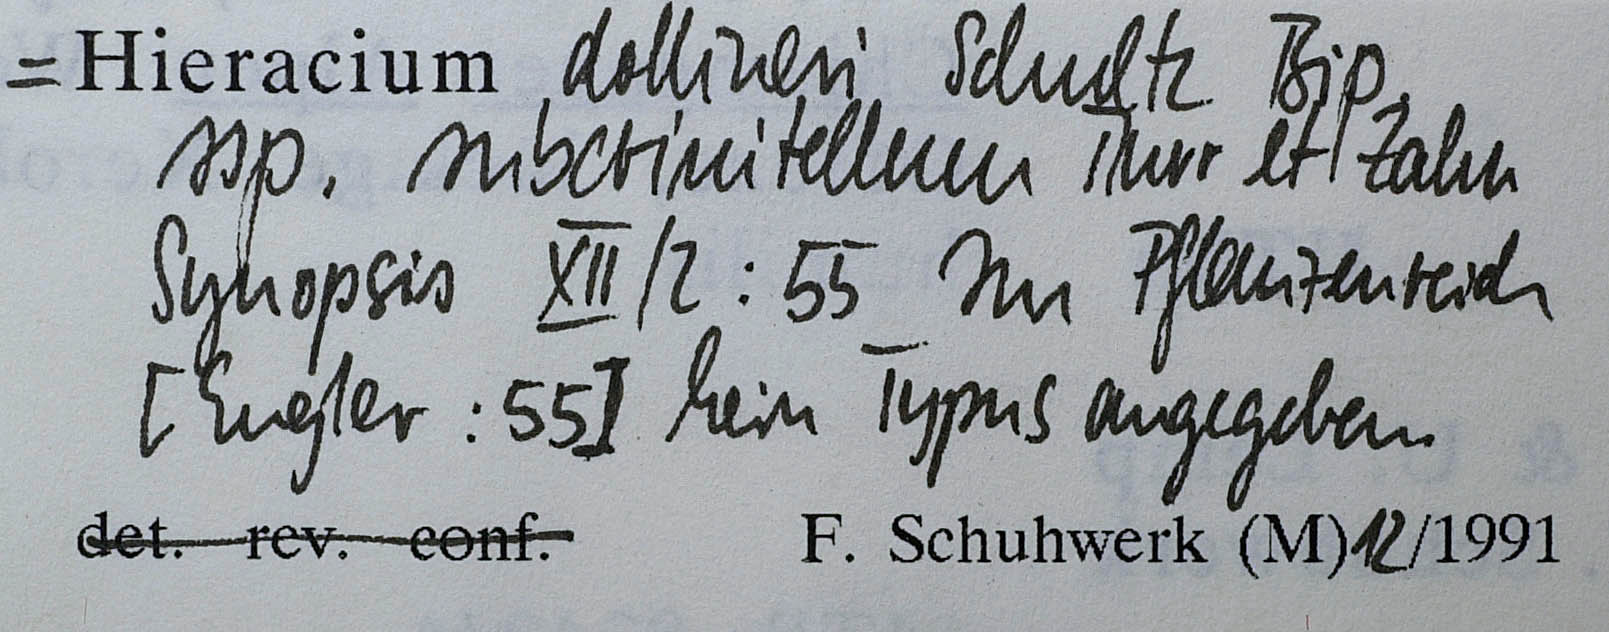 = Hieracium dollineri Schultz Bip.
ssp. subcrinitellum Murr et Zahn
Synopsis XII/2 : 55 Im Pflanzenreich
[Engler : 55] kein Typus angegeben.
det. rev. conf. F. Schuhwerk (M) 12/1991